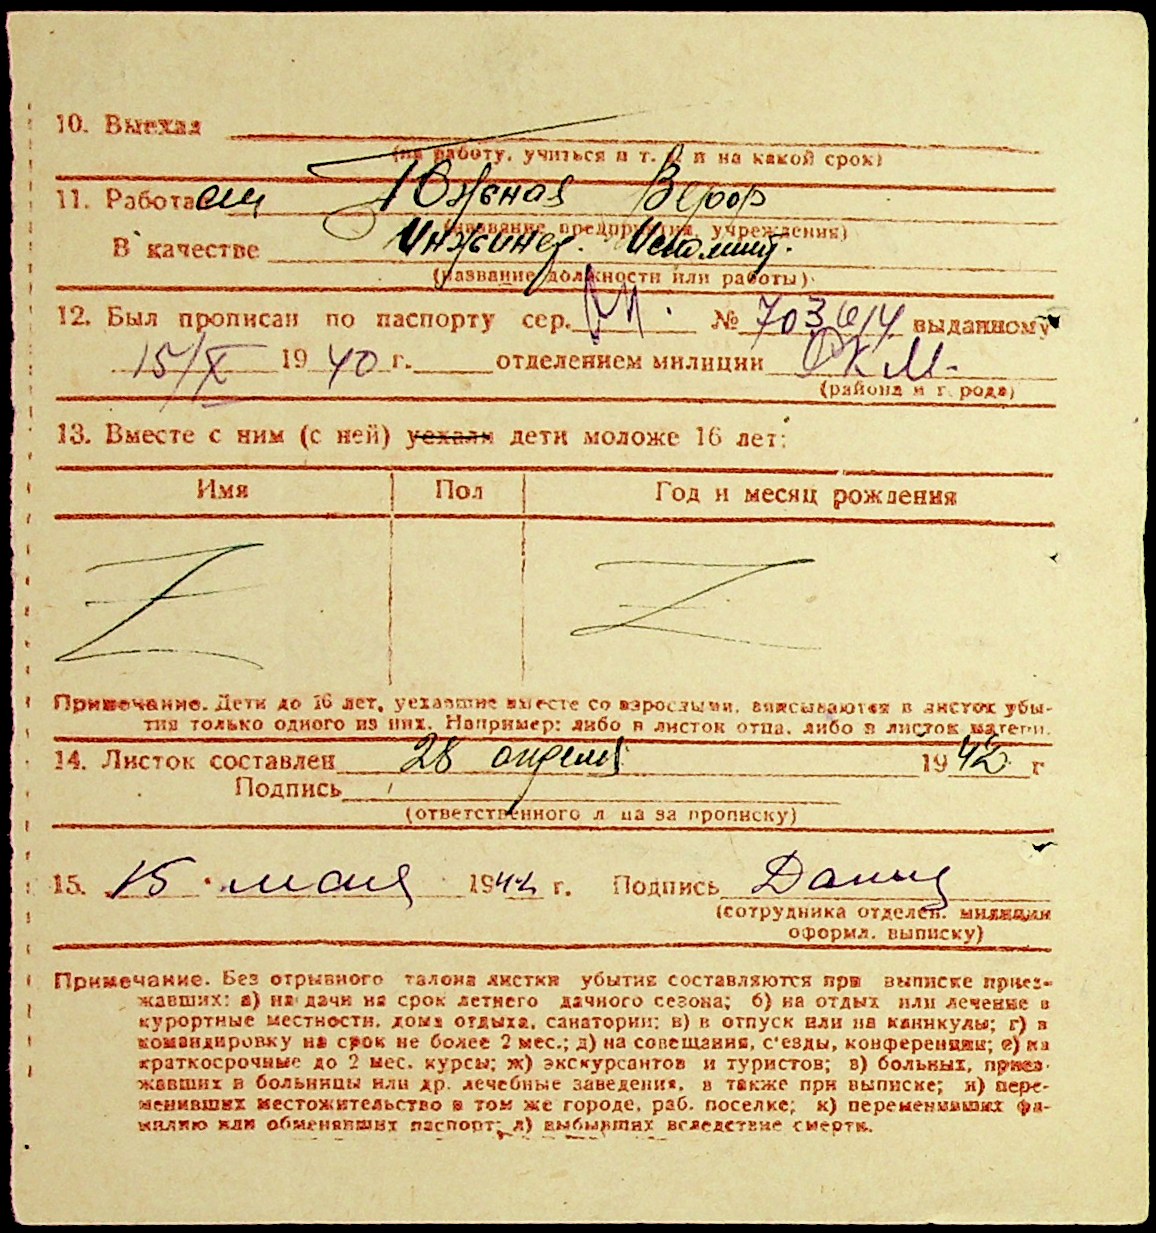 10. Выехал
(на работу, учиться и т. д. и на какой срок)
11. Работает Южная Верфь
(название предприятия, учреждения)
В качестве Инженер.
(название должности или работы)
12. Был прописан по паспорту сер. М. № 703614 выданному
15/X 1940 г. отделением милиции ОКМ.
(района и города)
13. Вместе с ним (с ней) уехали дети моложе 16 лет:
Имя Пол Год и месяц рождения
Z Z
Примечание. Дети до 16 лет, уехавшие вместе со взрослыми, вписываются в листок убы-
тия только одного из них. Например: либо в листок отца, либо в листок матери.
14. Листок составлен 28 апреля 1942 г
Подпись
(ответственного лица за прописку)
15. 15 мая 1942 г. Подпись
(сотрудника отделен. милиции
оформл. выписку)
Примечание. Без отрывного талона листки убытия составляются при выписке приез-
жавших: а) на дачи на срок летнего дачного сезона; б) на отдых или лечение в
курортные местности, дома отдыха, санатории; в) в отпуск или на каникулы; г) в
командировку на срок не более 2 мес.; д) на совещания, с'езды, конференции; е) на
краткосрочные до 2 мес. курсы; ж) экскурсантов и туристов; з) больных, приез-
жавших в больницы или др. лечебные заведения, а также при выписке; и) пере-
менивших местожительство в том же городе, раб. поселке; к) переменивших фа-
милию или обменявших паспорт; л) выбывших вследствие смерти.